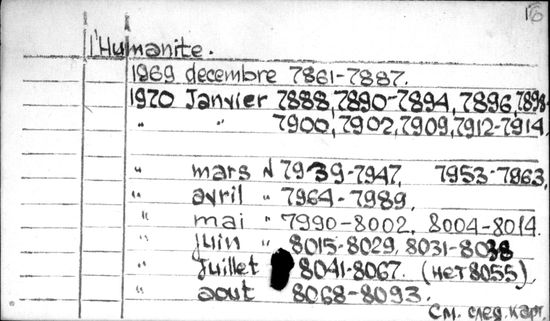 16
L'Humanite.
1969 decembre 7861-7887.
1970 Janvier 7888, 7890-7894, 7896, 7898
" " 7900, 7902, 7909, 7912-7914
" mars N 7939-7947, 7953-7963,
" avril " 7964-7989,
" mai " 7990-8002, 8004-8014.
" juin " 8015-8029, 8031-8038
" Juillet 8041-8067. (нет 8055)
" aout 8068-8093.
См. след. карт.